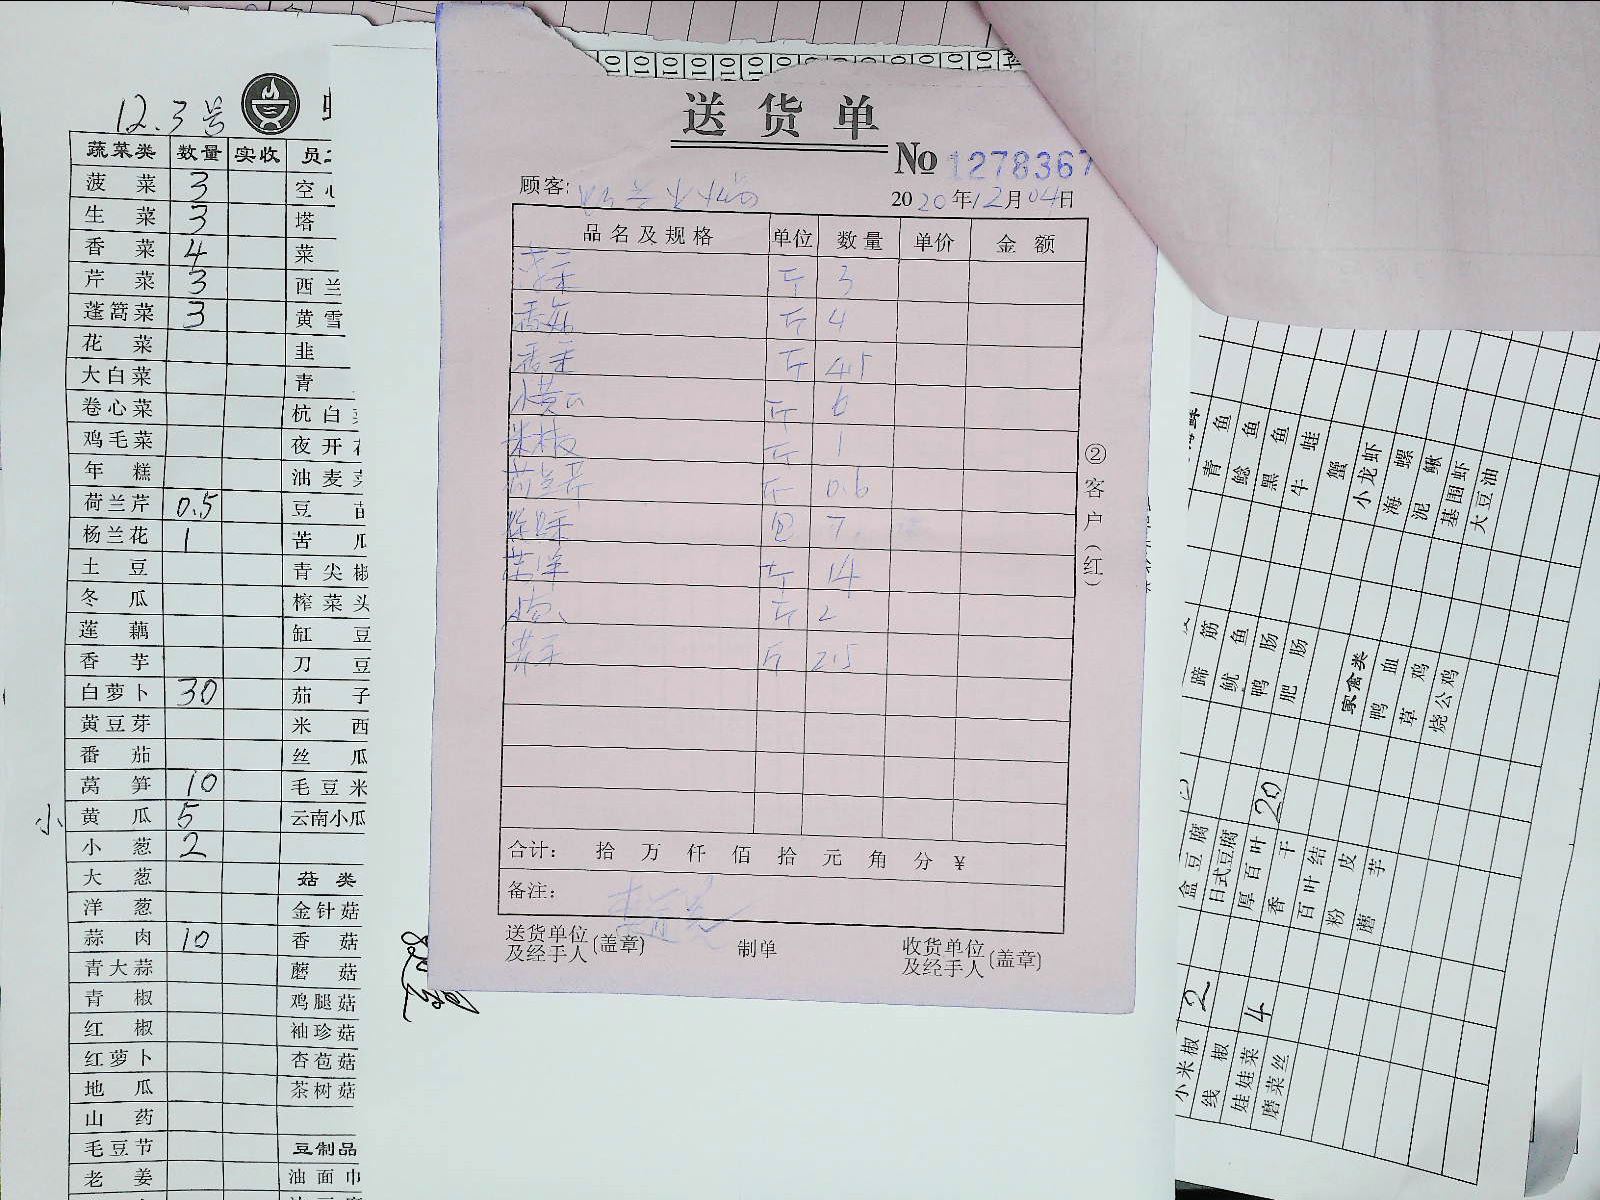 12.3号
蔬菜类 数量 实收 员
菠菜 3 空心
生菜 3 塔
香菜 4 菜
芹菜 3 西兰
蓬蒿菜 3 黄雪
花菜 韭
大白菜 青
卷心菜 杭白菜
鸡毛菜 夜开花
年糕 油麦菜
荷兰芹 0.5 豆苗
杨兰花 1 苦瓜
土豆 青尖椒
冬瓜 榨菜头
莲藕 缸豆
香芋 刀豆
白萝卜 30 茄子
黄豆芽 米西
番茄 丝瓜
莴笋 10 毛豆米
小 黄瓜 5 云南小瓜
小葱 2
大葱 菇类
洋葱 金针菇
蒜肉 10 香菇
青大蒜 蘑菇
青椒 鸡腿菇
红椒 袖珍菇
红萝卜 杏苞菇
地瓜 茶树菇
山药
毛豆节 豆制品
老姜 油面巾
送货单
No 1278367
顾客:
2020年12月04日
品名及规格 单位 数量 单价 金额
斤 3
香菇 斤 4
香菜 斤 4.5
小黄瓜 斤 6
米椒 斤 1
荷兰芹 斤 0.6
包 7
斤 14
小葱 斤 2
斤 2.5
合计: 拾 万 仟 佰 拾 元 角 分 ¥
备注:
送货单位及经手人(盖章) 制单 收货单位及经手人(盖章)
②客户(红)
青鱼
鲶鱼
黑鱼
牛蛙
蟹
小龙虾
海螺
泥鳅
基围虾
大豆油
蹄筋
鱿鱼
鸭肠
肥肠
家禽类
鸭血
草鸡
烧公鸡
盒豆腐
日式豆腐
厚百叶 20
香干
百叶结
粉皮
蘑芋
小米椒 2
线椒
娃娃菜 4
磨菜丝